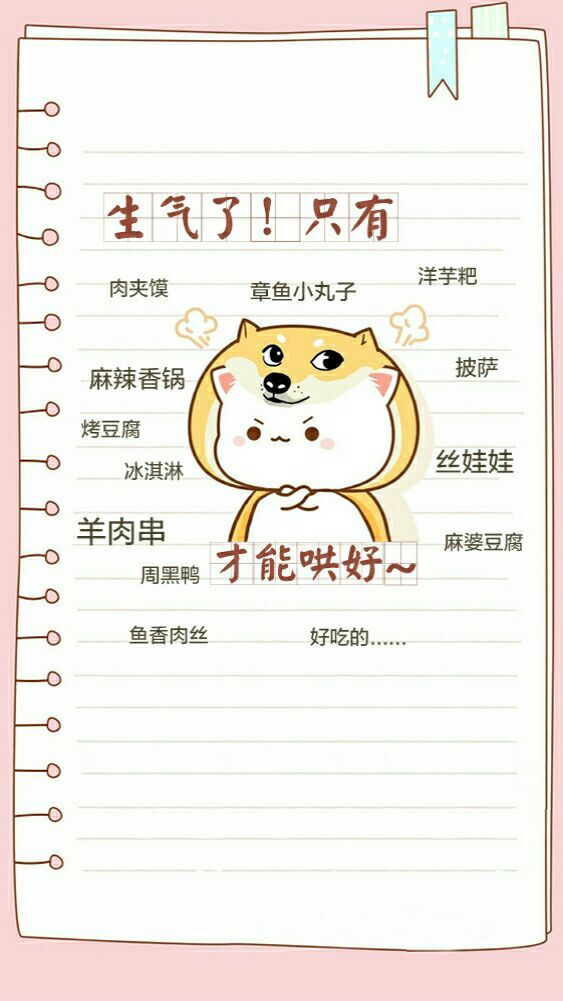 生气了！只有
肉夹馍 章鱼小丸子 洋芋粑
麻辣香锅 披萨
烤豆腐
冰淇淋 丝娃娃
羊肉串 麻婆豆腐
周黑鸭 才能哄好~
鱼香肉丝 好吃的……